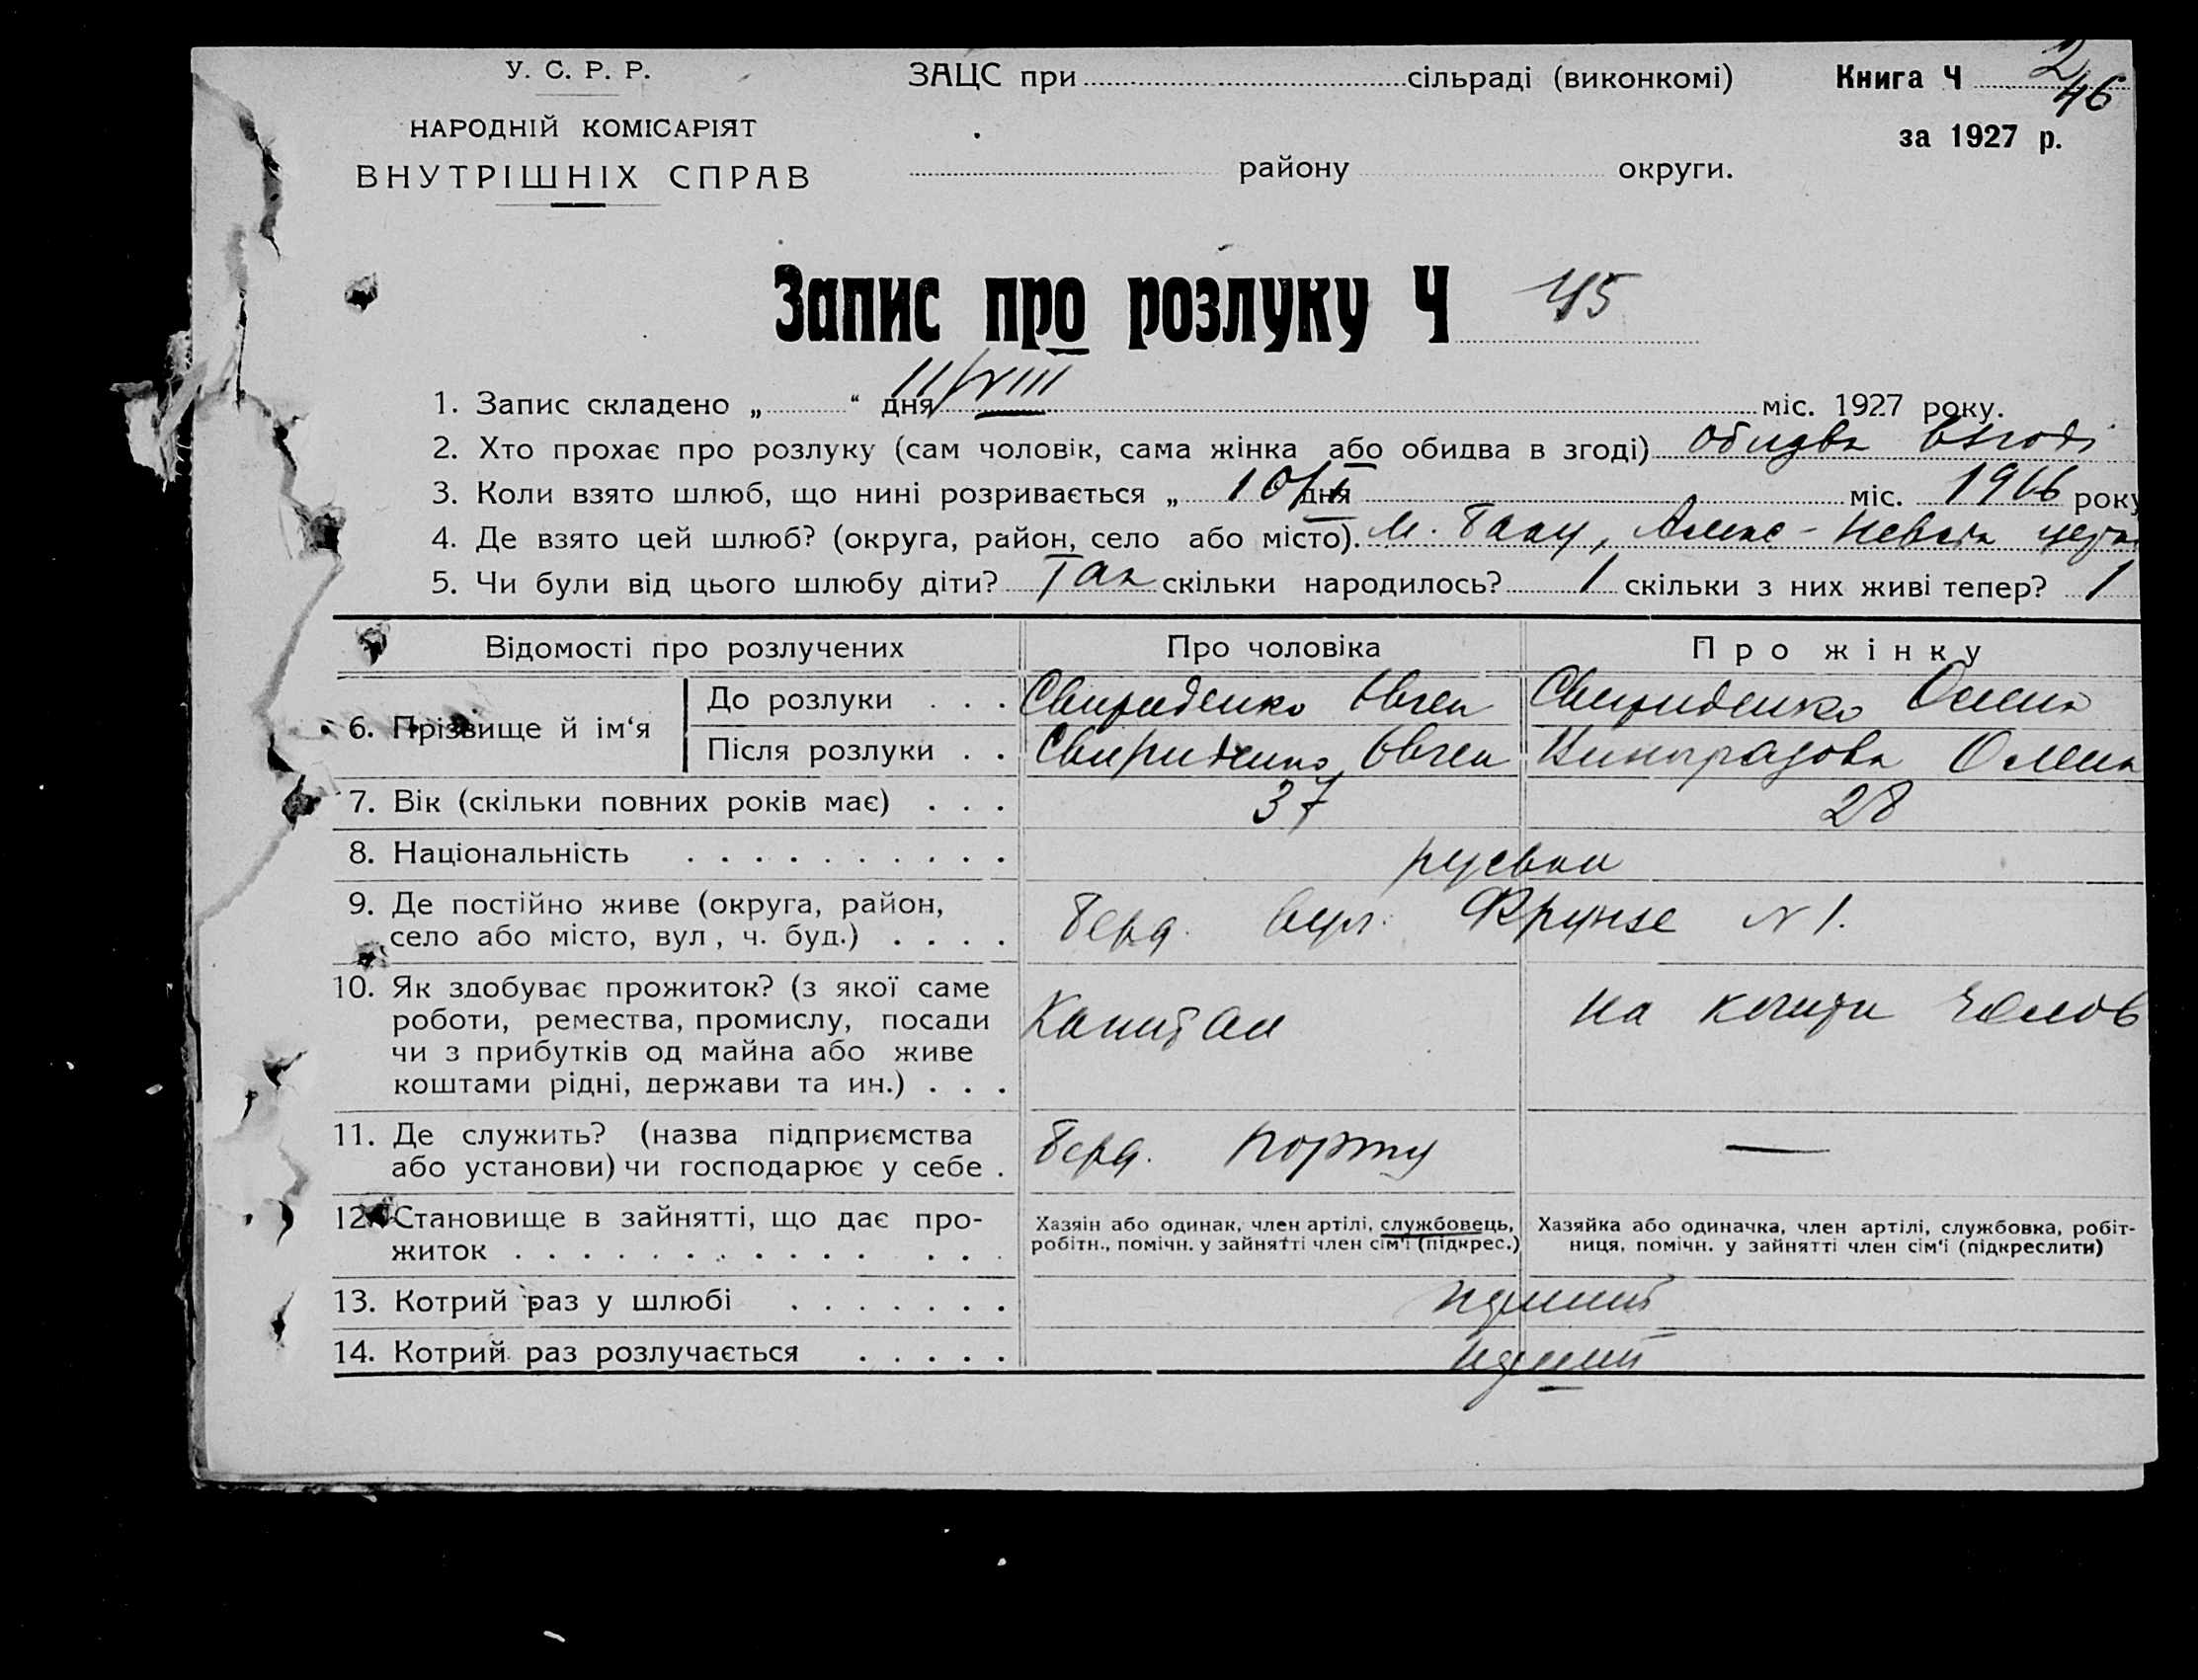 У. С. Р. Р.
НАРОДНІЙ КОМІСАРІЯТ
ВНУТРІШНІХ СПРАВ
ЗАЦС при сільраді (виконкомі)
району округи.
Книга Ч 2
46
за 1927 р.
Запис про розлуку Ч 45
1. Запис складено „ “ дня 11/VIII міс. 1927 року.
2. Хто прохає про розлуку (сам чоловік, сама жінка або обидва в згоді) обидва в згоді
3. Коли взято шлюб, що нині розривається „ 10/ дня міс. 1916 року
4. Де взято цей шлюб? (округа, район, село або місто). м. Баку, Алекс-Невськ
5. Чи були від цього шлюбу діти? Так скільки народилось? 1 скільки з них живі тепер? 1
Відомості про розлучених Про чоловіка Про жінку
6. Прізвище й ім‘я
До розлуки . . . Свириденко Євген Свириденко Олена
Після розлуки . . Свириденко Євген Виноградова Олена
7. Вік (скільки повних років має) . . . 37 28
8. Національність . . . . . . . . . . руськи
9. Де постійно живе (округа, район,
село або місто, вул , ч. буд.) . . . . Берд. вул. Фрунзе N 1.
10. Як здобуває прожиток? (з якої саме
роботи, ремества, промислу, посади
чи з прибутків од майна або живе
коштами рідні, держави та ин.) . . . Капитан на кошти чолов
11. Де служить? (назва підприємства
або установи) чи господарює у себе . Берд. порту —
12. Становище в зайнятті, що дає про-
житок . . . . . . . . . . . . . .
Хазяін або одинак, член артілі, службовець,
робітн., помічн. у зайнятті член сім‘ї (підкрес.)
Хазяйка або одиначка, член артілі, службовка, робіт-
ниця, помічн. у зайнятті член сім‘ї (підкреслити)
13. Котрий раз у шлюбі . . . . . . .
14. Котрий раз розлучається . . . . .